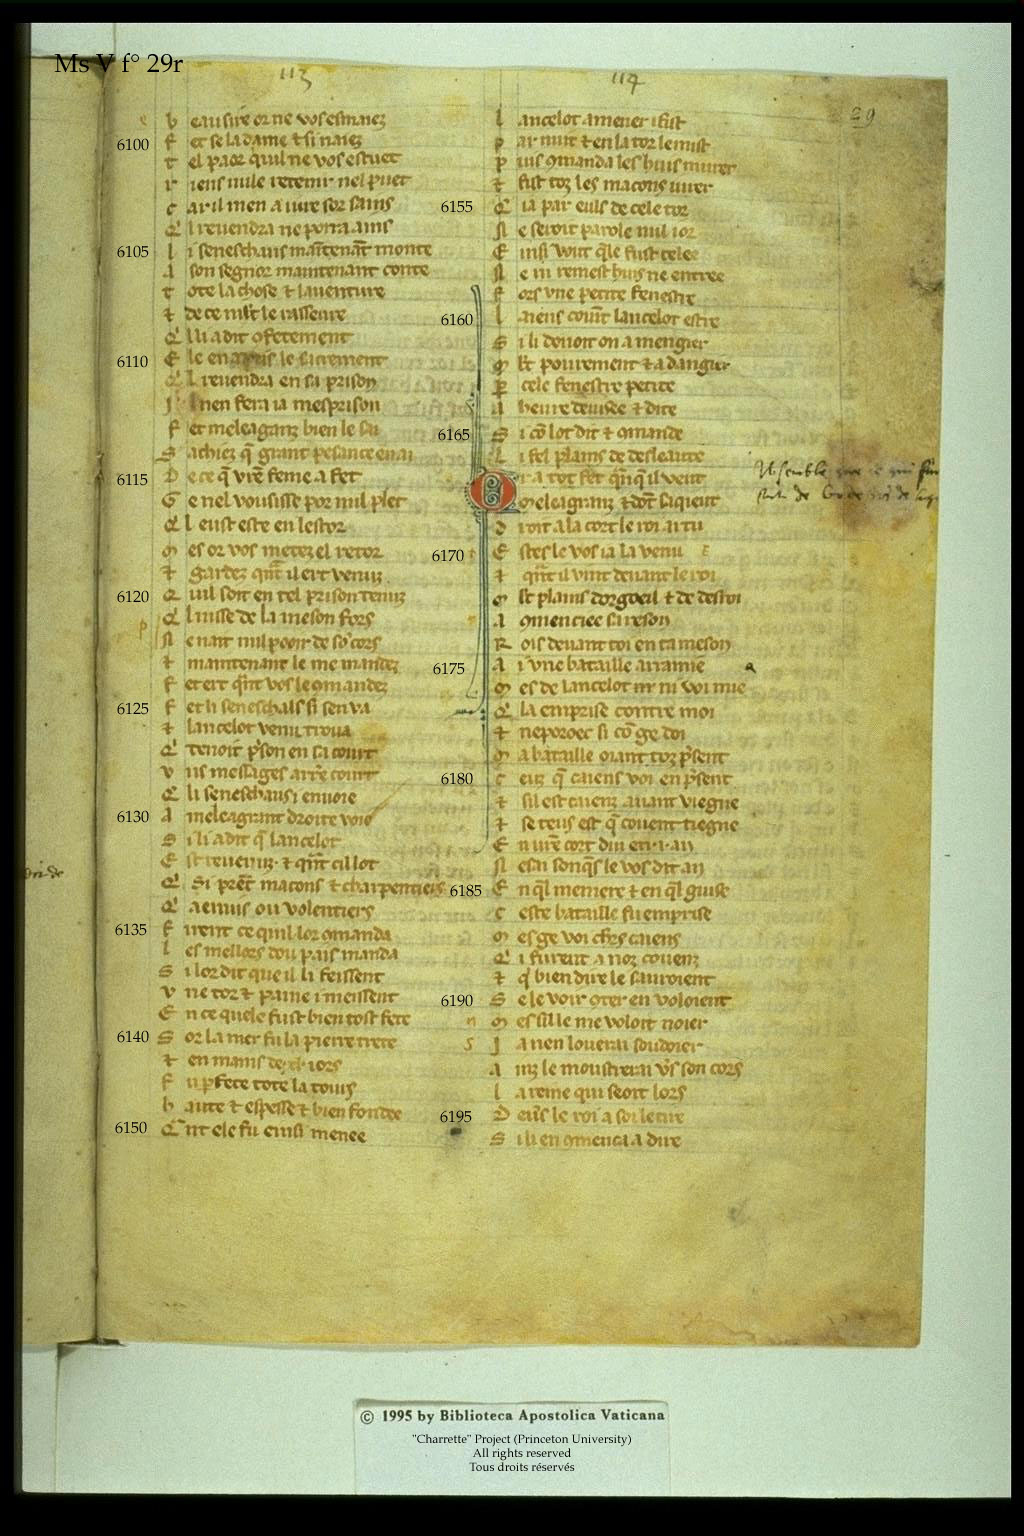 Ms V f° 29r
113
114
29
b eausire or ne vos esmaiez
6100 f et se la dame & si naiez
t el paor quil ne vos estuet
r iens nule retenir nel puet
c ar il men a iure sor sains
Q l reuendra ne porra ains
6105 l i seneschaus maintenant monte
A son segnor maintenant conte
t ote la chose & lauenture
& de ce le rasseure
Q lui a dit
6110 E le en le sairement
Q l reuendra en sa prison
J nen fera ia mesprison
f et meleaganz bien le sai
S achiez q̄ grant pesance en ai
6115 D e ce q̄ vr̄e feme a fet
G e nel vousisse por mil
Q l eust este en lestor
m es or vos metez el retor
& gardez qn̄t il ert venuz
6120 Q uil soit en tel prison tenuz
Q l nisse de la meson fors
N e nait nul pooir de so cors
& maintenant le me mandez
f et ert qn̄t vos le 9mandez
6125 f et li seneschals si sen va
& lancelot venu troua
Q tenoit pson en sa court
v ns messages arre court
Q li seneschaus i enuoie
6130 A meleagrant droite voie
S i li a dit q̄ lancelot
E st reuenuz & qn̄t cil lot
Q Si macons & charpentiers
Q a enuis ou volentiers
6135 f irent ce quil lor 9manda
l es mellors dou pais manda
S i lor dit que il li feissent
v ne tor & paine i meissent
E n ce quele fust bien tost fete
6140 S or la mer fu la pierre trete
& en mains de iors
f u pfete tote la tours
h aute & espesse & bien fondee
6150 Q nt ele fu einsi menee
l ancelot amener i fist
p ar nuit & en la tor le mist
p uis 9manda les huis murer
& fist toz les macons iurer
6155 Q ia par euls de cele tor
N e seroit parole nul ior
E insi voit qle fust celee
N e ni remest huis ne entree
f ors vne petite fenestre
6160 l aiens couit lancelot estre
S i li denoit on a mengier
m lt pourement & a dangier
p cele fenestre petite
A heure deuisee & dite
6165 S i cō lot dit & 9mande
L i fel plains de desleaute
r a tot fet qnq il veut
O meleagranz & dōt saquieut
D roit a la cort le roi artu
6170 E stes le vos ia la venu
& qn̄t il vint deuant le roi
m lt plains dorgoeil & de desroi
A 9menciee sa reson
R ois deuant toi en ta meson
6175 A i vne bataille arramie
m es de lancelot ni voi mie
Q la emprise contre moi
& neporoec si cō ge doi
m a bataille oiant toz psent
6180 c euz q̄ caiens voi en psent
& sil est caienz auant viegne
& se teus est q̄ couent tiegne
E n vr̄e cort dui en .i. an
N e sai sonqs le vos dit an
6185 E n ql meniere & en ql guise
c este bataille fu emprise
m es ge voi chrs caiens
Q i furent a noz couenz
& q bien dire le sauroient
6190 S e le voir 9ter en voloient
m es sil le me voloit noier
J a nen louerai soudoier
A inz le moustrerai vs son cors
l a reine qui seoit lors
6195 D euers le roi a soi le tire
S i li en 9menca a dire
© 1995 by Biblioteca Apostolica Vaticana
"Charrette" Project (Princeton University)
All rights reserved
Tous droits réservés